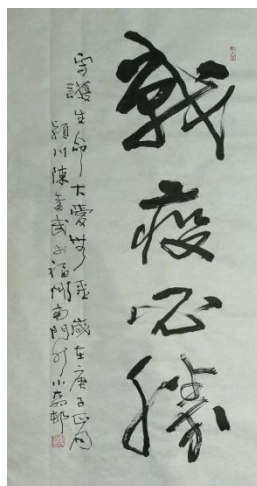 戰疫必勝
守護生命大愛無疆 歲在庚子正月
潁川陳金武於福州南門外小磊邨